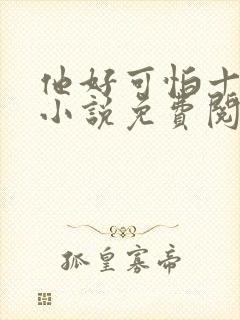 他好可怕十
小說免費閱
孤皇寡帝